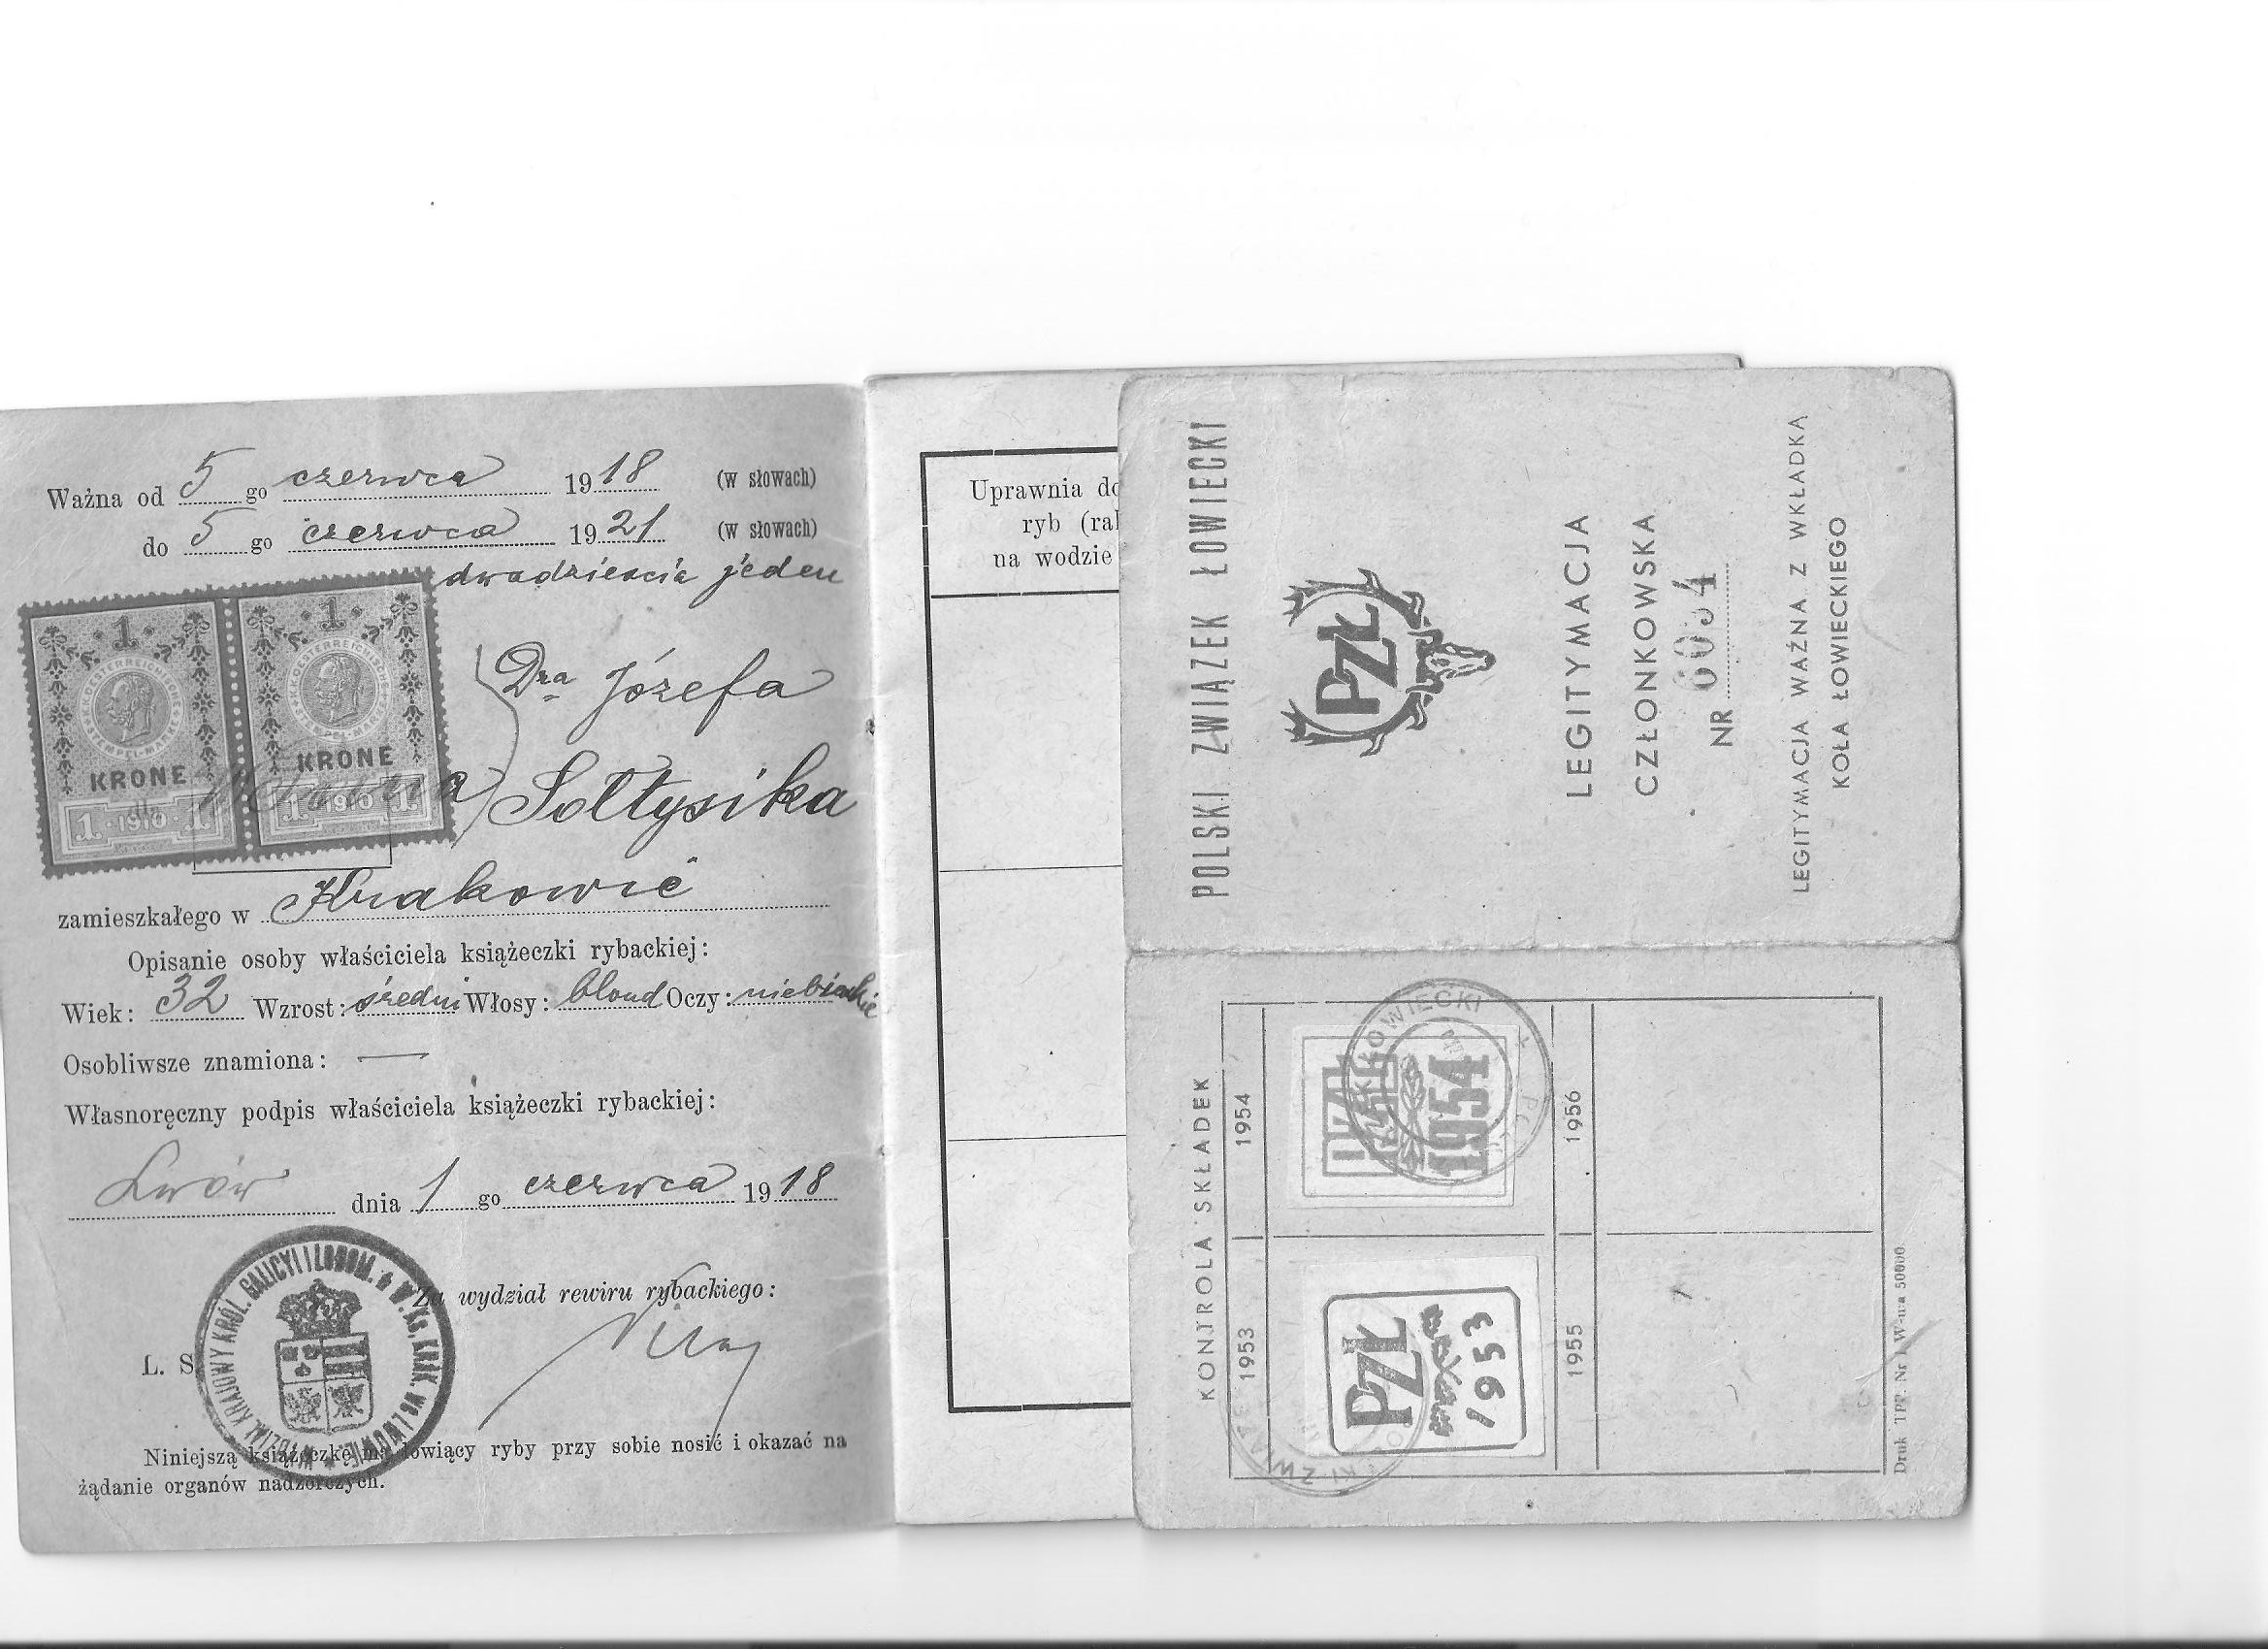 Ważna od 5 go czerwca 1918 (w słowach)
do 5 go czerwca 1921 (w słowach)
dwadzieścia jeden
1 1
K.K. OESTERREICHISCHE STEMPEL-MARKE
K.K. OESTERREICHISCHE STEMPEL-MARKE
KRONE KRONE
1 1910 1 1 1910 1
Dra Józefa
Sołtysika
zamieszkałego w Krakowie
Opisanie osoby właściciela książeczki rybackiej:
Wiek: 32 Wzrost: średni Włosy: blond Oczy: niebieskie
Osobliwsze znamiona: —
Własnoręczny podpis właściciela książeczki rybackiej:
Lwów dnia 1 go czerwca 1918
Za wydział rewiru rybackiego:
L. S.
WYDZIAŁ KRAJOWY KRÓL. GALICYI I LODOM. W. KS. KRAK. WE LWOWIE
Niniejszą książeczkę ma łowiący ryby przy sobie nosić i okazać na
żądanie organów nadzorczych.
Uprawnia do
ryb (rak
na wodzie
POLSKI ZWIĄZEK ŁOWIECKI
PZŁ
LEGITYMACJA
CZŁONKOWSKA
NR 6034
LEGITYMACJA WAŻNA Z WKŁADKĄ
KOŁA ŁOWIECKIEGO
KONTROLA SKŁADEK
1953 1954
PZŁ
1953
PZŁ
1954
ŁOWIECKI
1955 1956
Druk TPP. Nr 1 W-wa 50000